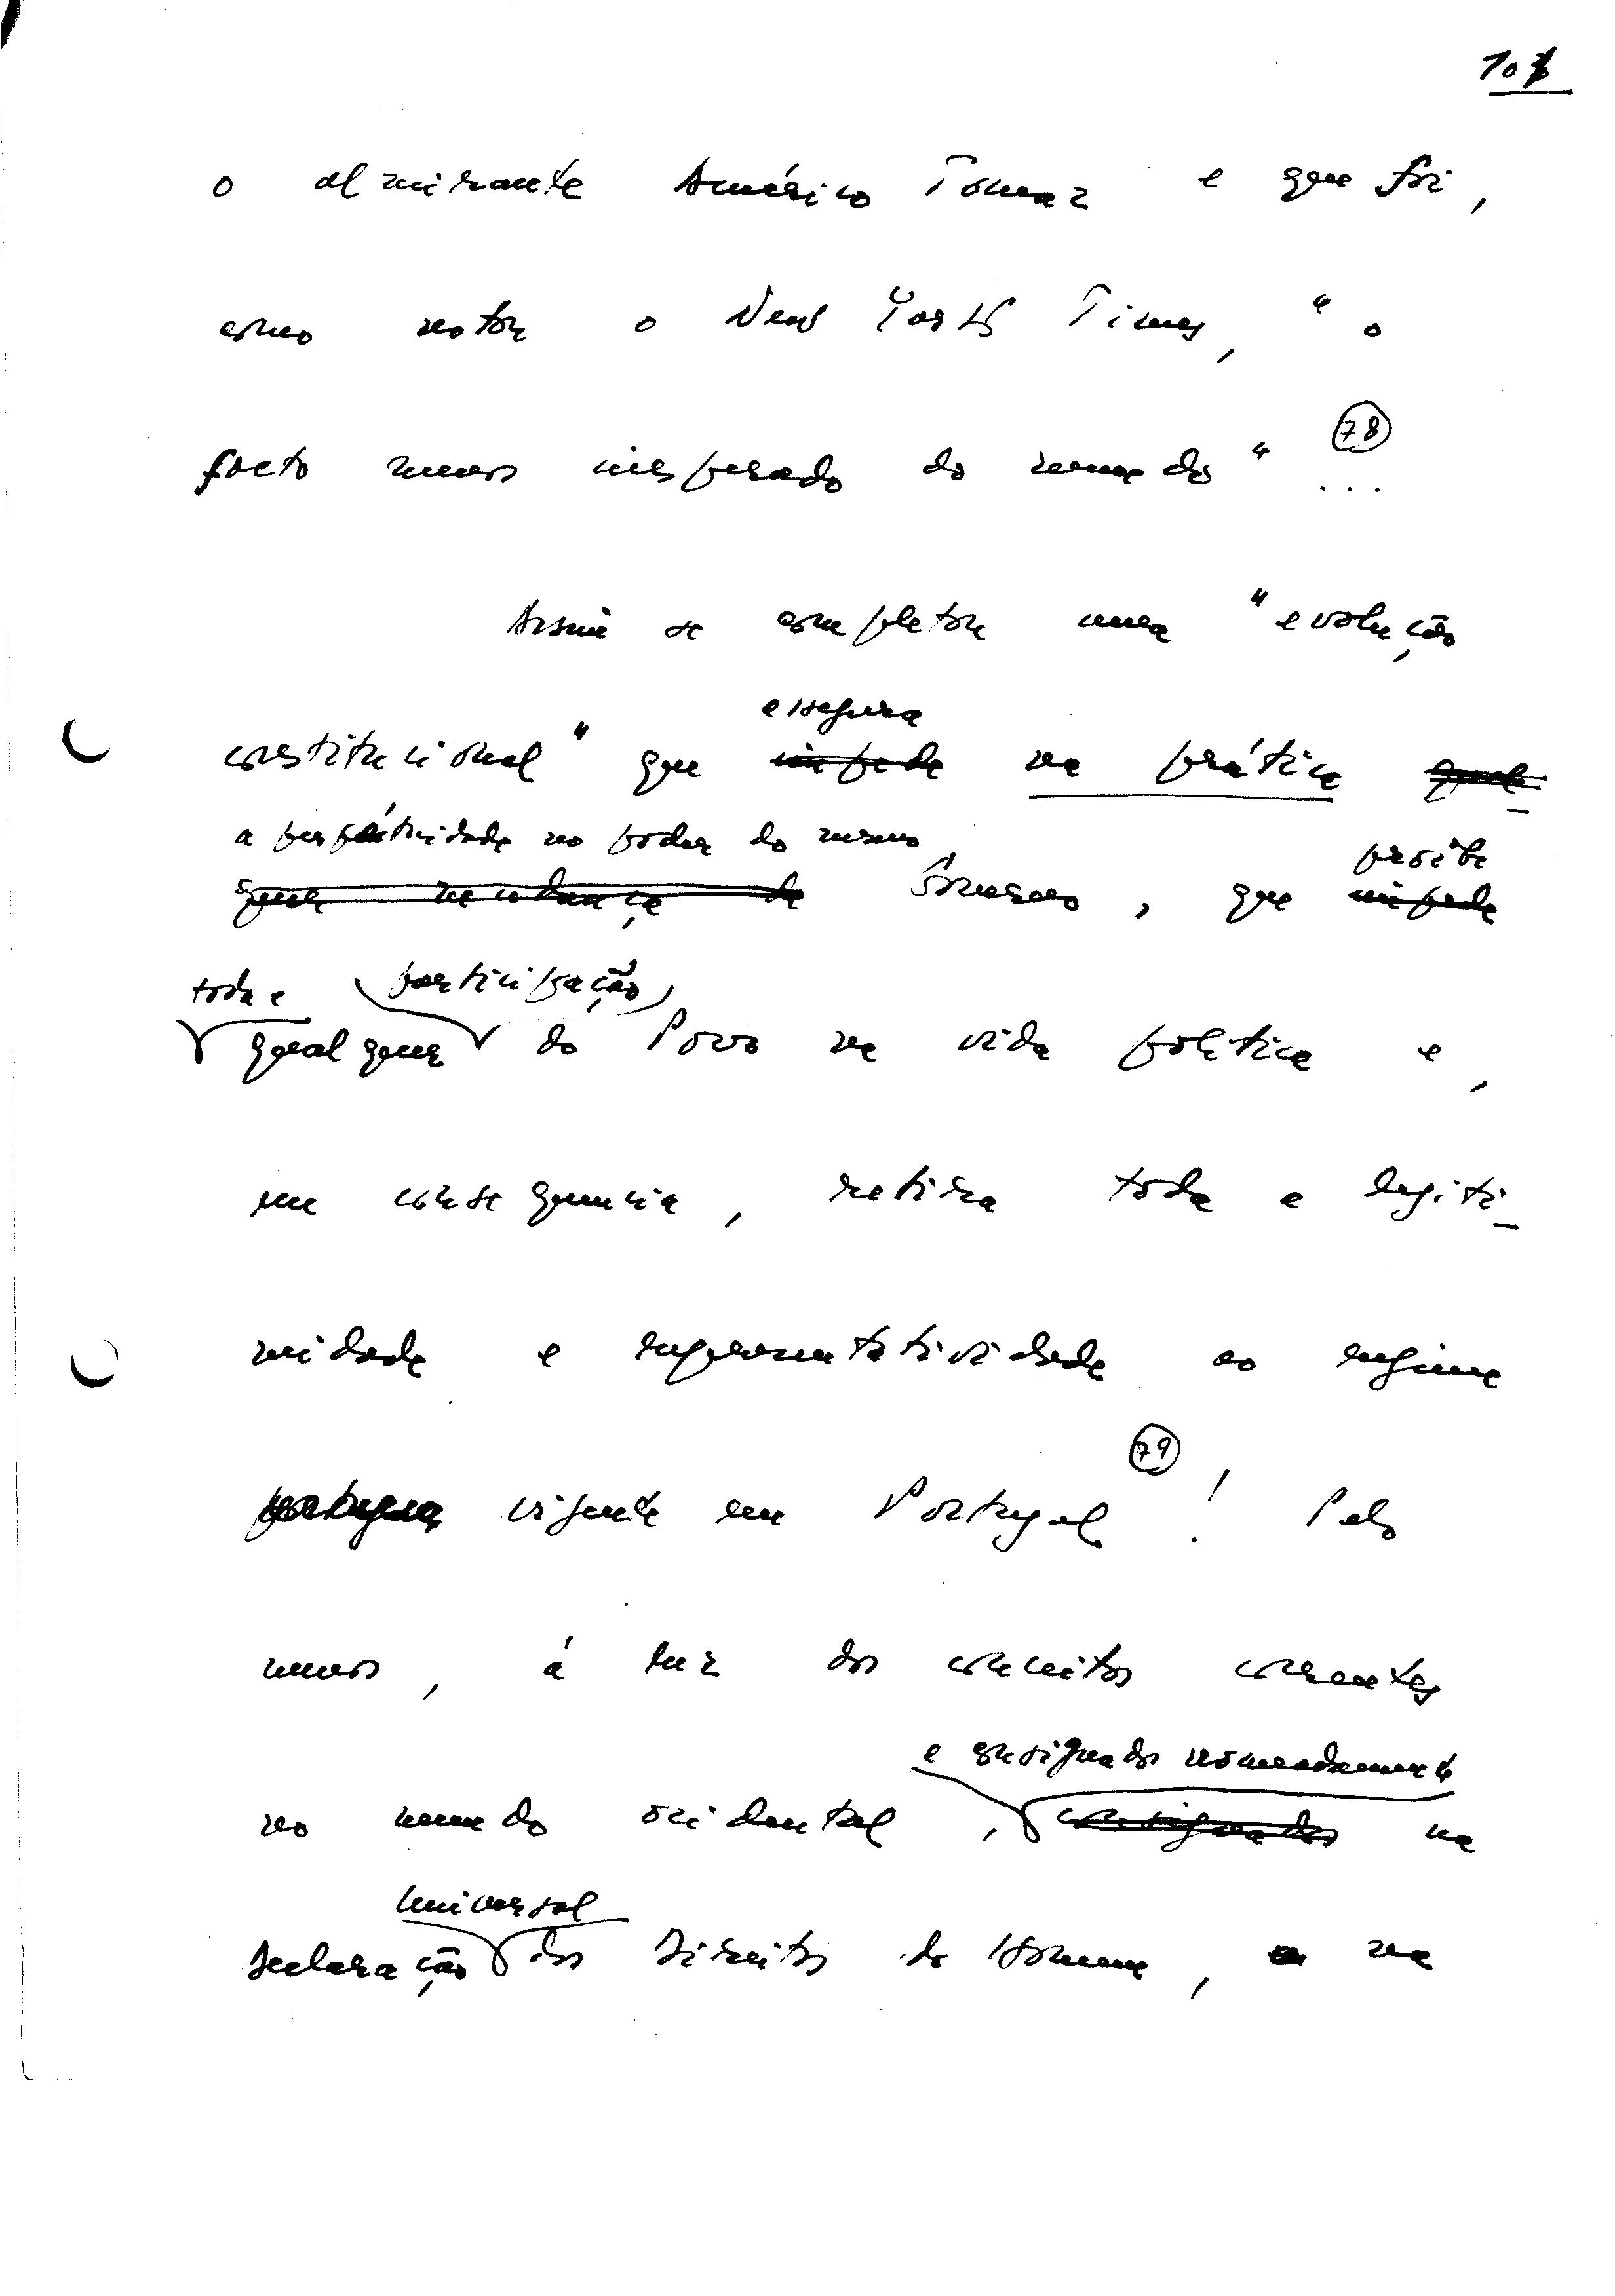 107
o almirante Américo Tomaz e que foi,
como notou o New York Times, "o
facto menos inesperado do mundo" (78) ...
Assim se completou uma "evolução
assegura
constitucional" que impede na prática qual-
a perpétuidade no poder do mesmo
quer mudança de Governo, que impede
proíbe
toda e participação
qualquer do Povo na vida política e,
em consequencia, retira toda a legiti-
midade e representatividade ao regime
vigente em Portugal (79) ! Pelo
menos, á luz dos conceitos correntes
e consignados nomeadamente
no mundo ocidental, consignados na
Universal
Declaração dos Direitos do Homem, na